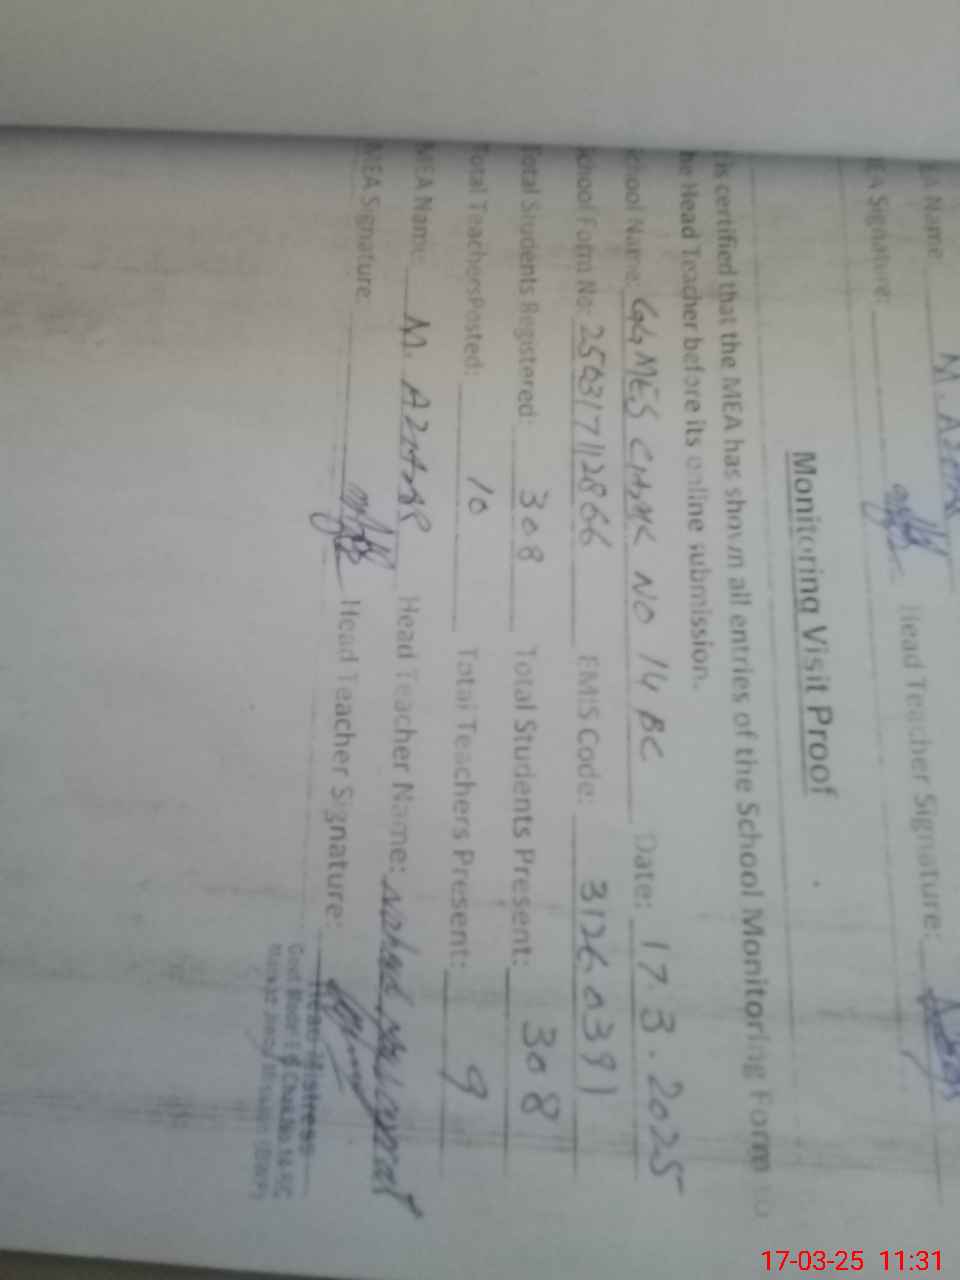 EA Name M. Azhar
EA Signature: Head Teacher Signature:
Monitoring Visit Proof
is certified that the MEA has shown all entries of the School Monitoring Form to
he Head Teacher before its online submission.
chool Name: GGMES CHAK NO 14 BC Date: 17.3.2025
School Form No: 250317112866 EMIS Code: 3126.0391
Total Students Registered: 308 Total Students Present: 308
Total Teachers Posted: 10 Total Teachers Present: 9
MEA Name: M. AZHAR Head Teacher Name:
MEA Signature: Head Teacher Signature:
Head Mistress
Chak No. 14-BC
17-03-25 11:31